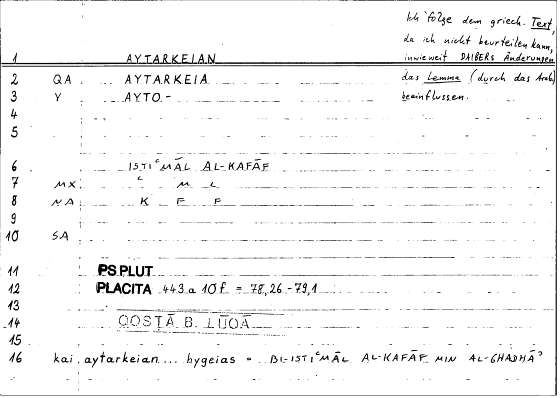 Ich folge dem griech. Text,
da ich nicht beurteilen kann,
inwieweit DAIBERS Änderungen
das Lemma (durch das Arab.)
beeinflussen.
1 AYTARKEIAN
2 QA AYTARKEIA
3 Y AYTO-
4
5
6 ISTIʿMĀL AL-KAFĀF
7 MX ʿ M L
8 NA K F F
9
10 SA
11 PS PLUT
12 PLACITA 443a 10f = 78,26-79,1
13
14 QOSṬĀ B. LŪQĀ
15
16 kai aytarkeian ... hygeias = BI-ISTIʿMĀL AL-KAFĀF MIN AL-GHADHĀʾ